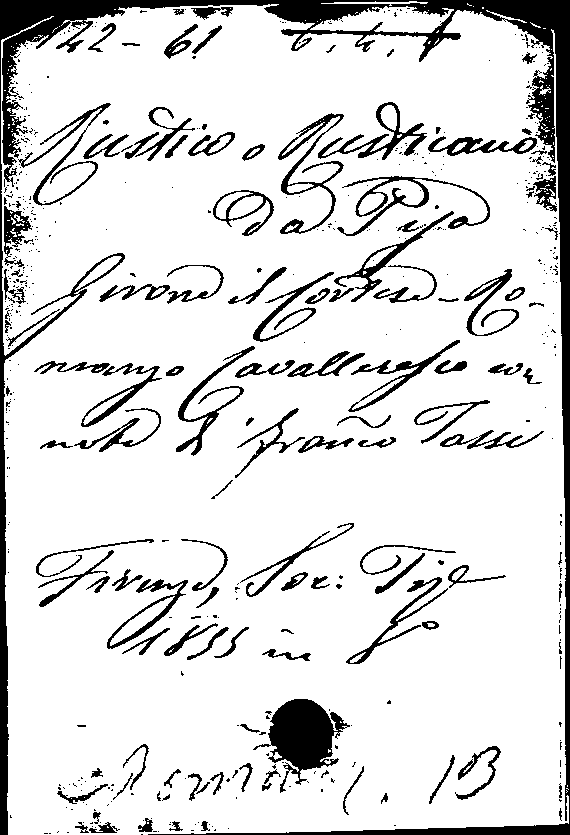 142-61 6.4.1
Rustico o Rusticano
da Pisa
Girone il Cortese - Ro-
manzo Cavalleresco con
note d'Franc̃o Tassi
Firenze, Soc: Tip
1855 in 8º
Romanz. 13